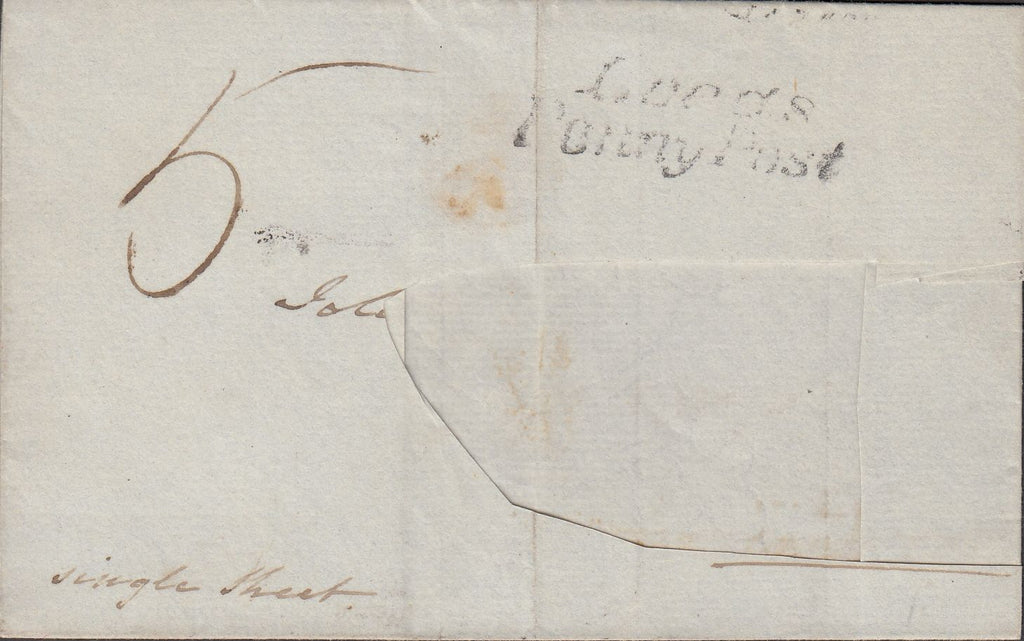 5
Leeds
Penny Post
Joh
single Sheet